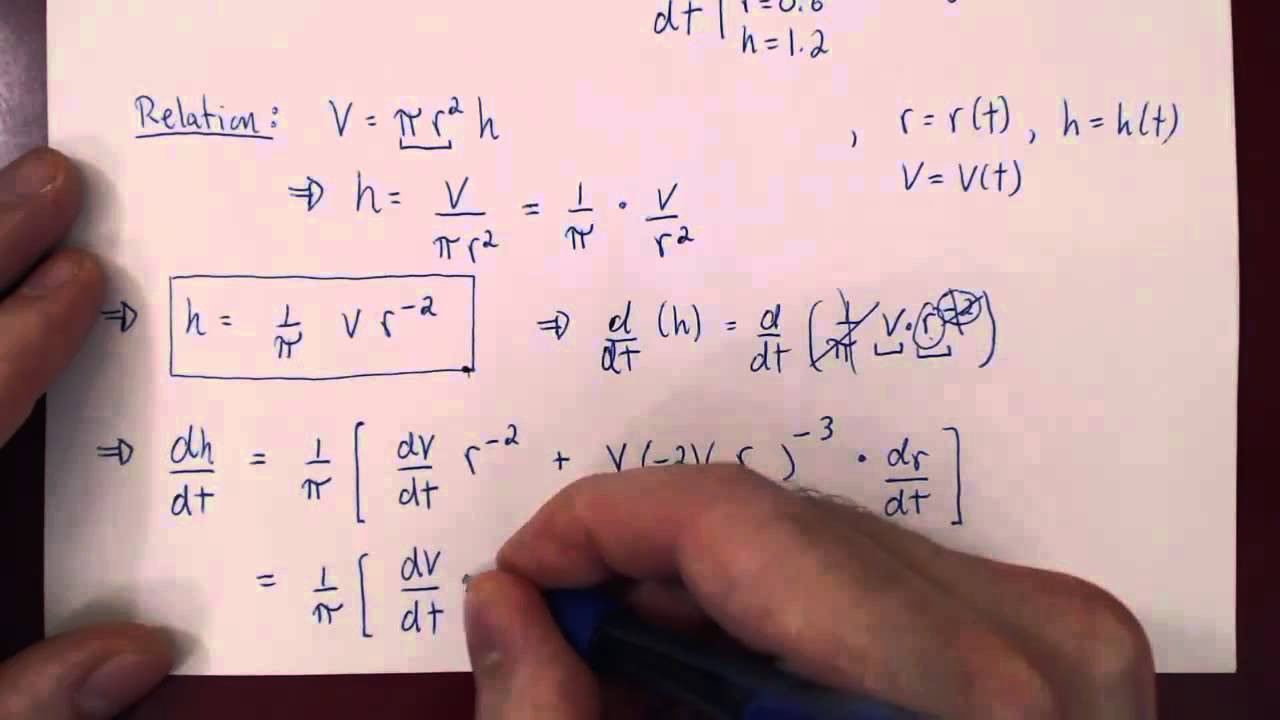 dt | r = 0.6
h = 1.2
Relation: V = πr² h , r = r(t), h = h(t)
V = V(t)
⇒ h = V/πr² = 1/π · V/r²
⇒ h = 1/π V r⁻² ⇒ d/dt (h) = d/dt (1/π V · r⁻²)
⇒ dh/dt = 1/π [ dV/dt r⁻² + V(-2)( r )⁻³ · dr/dt ]
= 1/π [ dV/dt